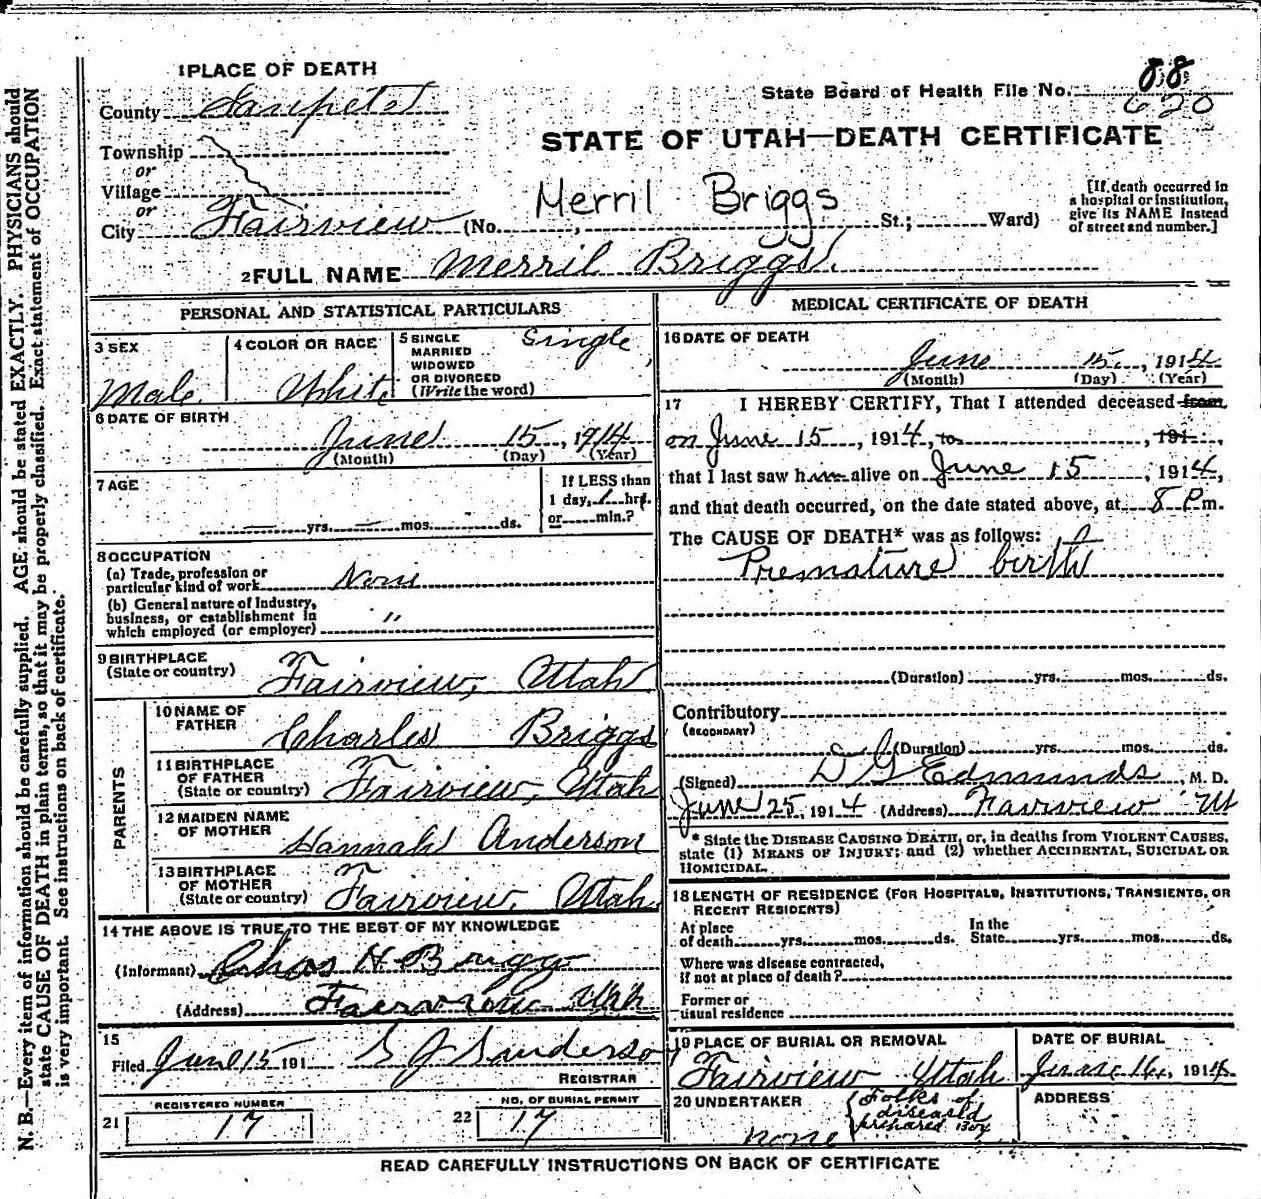 1 PLACE OF DEATH
County Sanpete
Township
or
Village
or
City Fairview (No. , St.; Ward)
Merril Briggs
State Board of Health File No. 88
620
STATE OF UTAH—DEATH CERTIFICATE
[If death occurred in
a hospital or institution,
give its NAME instead
of street and number.]
2 FULL NAME Merril Briggs.
PERSONAL AND STATISTICAL PARTICULARS
3 SEX
Male.
4 COLOR OR RACE
White
5 SINGLE
MARRIED
WIDOWED
OR DIVORCED
(Write the word)
Single
6 DATE OF BIRTH
June 15, 1914
(Month) (Day) (Year)
7 AGE
yrs. mos. ds.
If LESS than
1 day, 1 hrs.
or min.?
8 OCCUPATION
(a) Trade, profession or
particular kind of work None
(b) General nature of Industry,
business, or establishment in
which employed (or employer) "
9 BIRTHPLACE
(State or country) Fairview, Utah
PARENTS
10 NAME OF
FATHER Charles Briggs
11 BIRTHPLACE
OF FATHER
(State or country) Fairview, Utah
12 MAIDEN NAME
OF MOTHER Hannah Anderson
13 BIRTHPLACE
OF MOTHER
(State or country) Fairview, Utah
14 THE ABOVE IS TRUE TO THE BEST OF MY KNOWLEDGE
(Informant) Chas H Briggs
(Address) Fairview Utah
15
Filed June 15 191 S J Sanderson
REGISTRAR
REGISTERED NUMBER
21 17
NO. OF BURIAL PERMIT
22 17
MEDICAL CERTIFICATE OF DEATH
16 DATE OF DEATH
June 15, 1914
(Month) (Day) (Year)
17 I HEREBY CERTIFY, That I attended deceased from
on June 15, 1914, to , 191 ,
that I last saw him alive on June 15, 1914,
and that death occurred, on the date stated above, at 8 P m.
The CAUSE OF DEATH* was as follows:
Premature birth
(Duration) yrs. mos. ds.
Contributory
(SECONDARY)
(Duration) yrs. mos. ds.
(Signed) D G Edmunds, M. D.
June 25, 1914 (Address) Fairview Ut
* State the DISEASE CAUSING DEATH, or, in deaths from VIOLENT CAUSES,
state (1) MEANS OF INJURY; and (2) whether ACCIDENTAL, SUICIDAL OR
HOMICIDAL.
18 LENGTH OF RESIDENCE (FOR HOSPITALS, INSTITUTIONS, TRANSIENTS, OR
RECENT RESIDENTS)
At place
of death yrs. mos. ds.
In the
State yrs. mos. ds.
Where was disease contracted,
if not at place of death?
Former or
usual residence
19 PLACE OF BURIAL OR REMOVAL
Fairview Utah
DATE OF BURIAL
June 16, 1914
20 UNDERTAKER
none
Folks of
diseased
prepared Box
ADDRESS
READ CAREFULLY INSTRUCTIONS ON BACK OF CERTIFICATE
N. B.—Every item of information should be carefully supplied. AGE should be stated EXACTLY. PHYSICIANS should
state CAUSE OF DEATH in plain terms, so that it may be properly classified. Exact statement of OCCUPATION
is very important. See instructions on back of certificate.